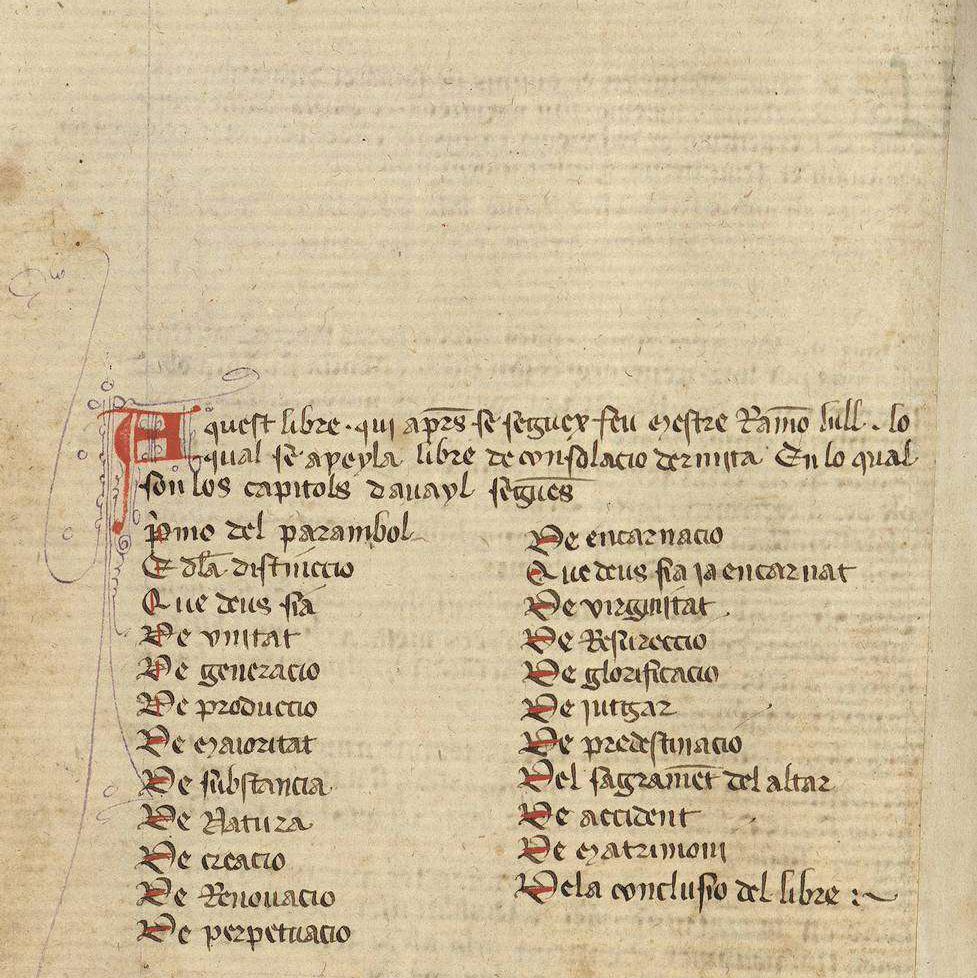 Aquest libre · qui aprs se seguex feu mestre Ramo lull · lo
qual se apeyla libre de consolacio dermita En lo qual
son los capitols dauayl segues
pmo del parambol
E dla distinccio
Que deus sia
De vnitat
De generacio
De produccio
De maioritat
De substancia
De Natura
De creacio
De Renouacio
De perpetuacio
De encarnacio
Que deus sia ia encarnat
De virginitat
De Resureccio
De glorificacio
De jutgar
De predestinacio
Del sagramet del altar
De accident
De matrimoni
Dela conclusio del libre :~